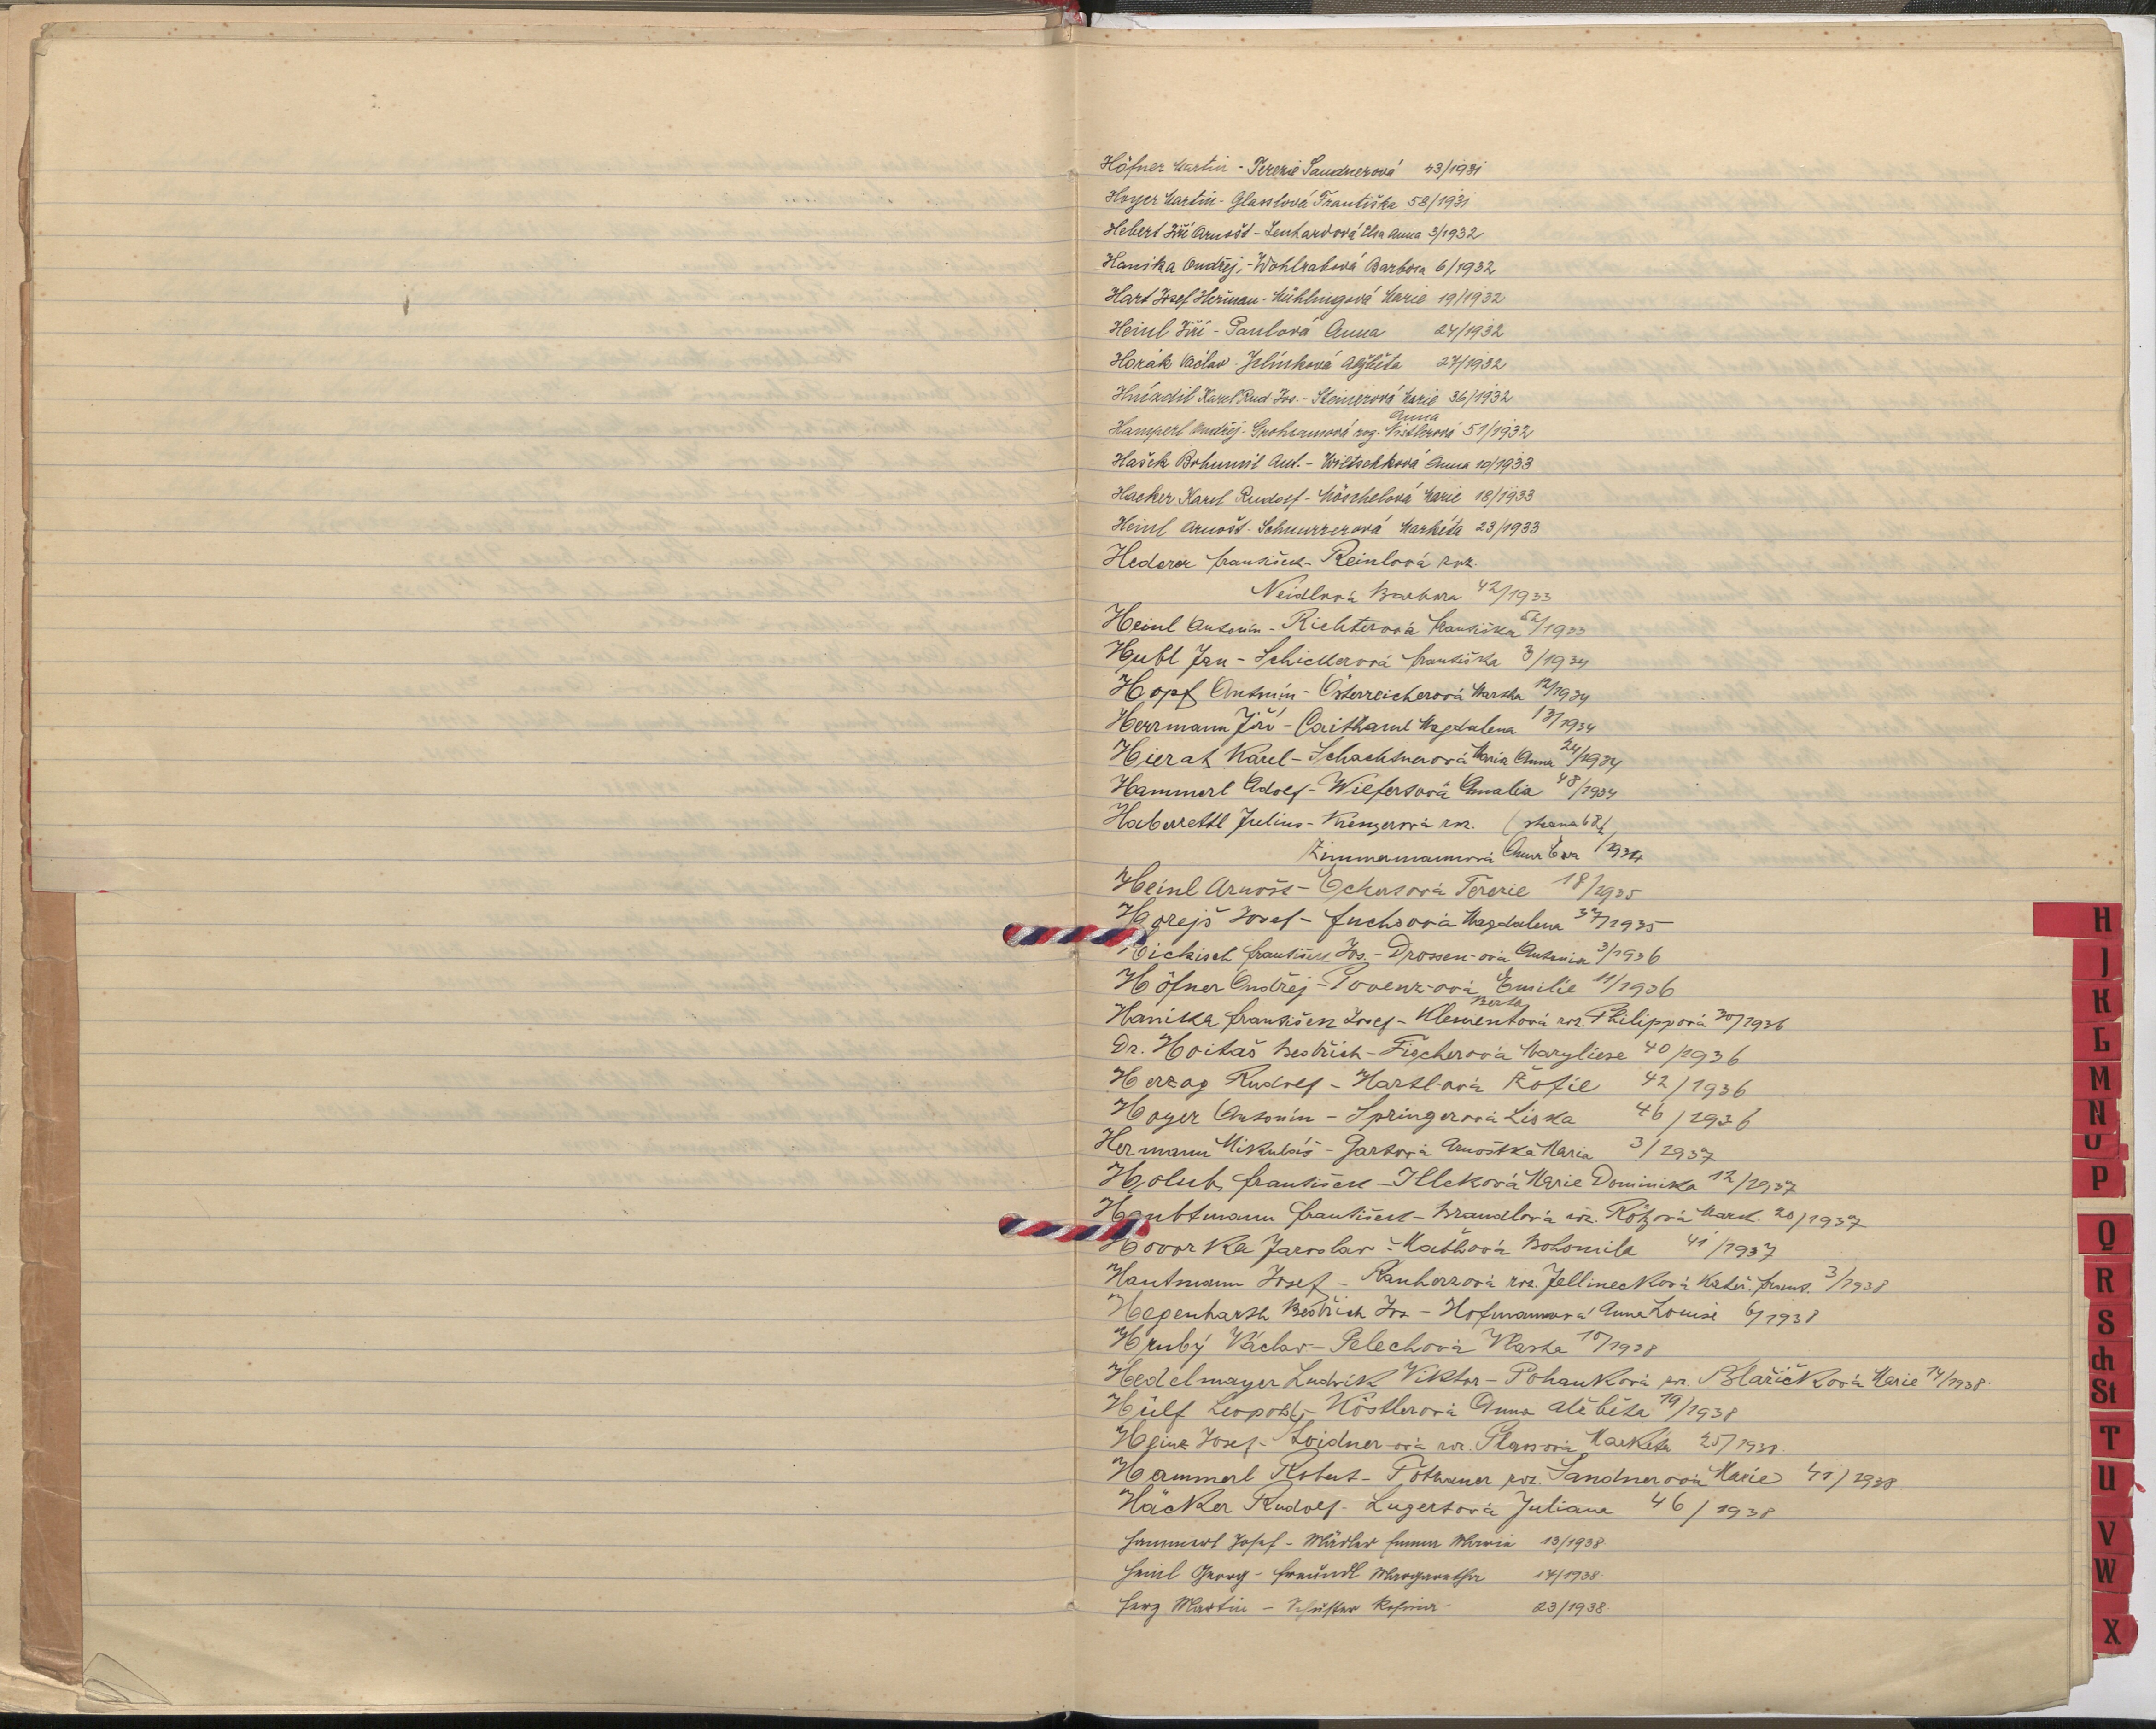 Höfner Martin - Terezie Sandnerová 43/1931
Hoyer Martin - Glasslová Františka 58/1931
Hebert Jiří Arnošt - Lenhardová Elsa Anna 3/1932
Hanika Ondřej, - Wohlrabová Barbora 6/1932
Hart Josef Heřman - Mühlingová Marie 19/1932
Heinl Jiří - Paulová Anna 24/1932
Horák Václav - Jelínková Alžběta 27/1932
Hníxdil Karel Rud Jos. - Steinerová Marie 36/1932
Anna
Hamperl Ondřej - roz. 51/1932
Hašek Bohumil Ant. - Wiltschková Anna 10/1933
Hacker Karel Rudolf - Möschelová Marie 18/1933
Heinl Arnošt - Schnurrerová Markéta 23/1933
Hederer František - Reinlová roz.
Neidlová Barbora 42/1933
Heinl Antonín - Richterová Františka 52/1933
Hubl Jan - Schickerová Františka 3/1934
Hopf Antonín - Österreicherová Martha 12/1934
Herrmann Jiří - Caithaml Magdalena 13/1934
Hierat Karel - Schachtnerová Maria Anna 24/1934
Hammerl Adolf - Wilfertová Amalia 48/1934
Haberzettl Julius - Krenzerová roz. (strana 68/
Zimmermannová Anna Eva 1934
Heinl Arnošt - Eckertová Terezie 18/1935
Hořejš Josef - Fuchsová Magdalena 37/1935
Hickisch František Jos. - Drossen-ová Antonia 3/1936
Höfner Ondřej - Povenz-ová Emilie 11/1936
Berta
Hanika František Josef - Klementová roz. Philippová 30/1936
Dr. Hoitaš Bedřich - Fischerová Maryliese 40/1936
Herzog Rudolf - Hartl-ová Žofie 42/1936
Hoyer Antonín - Springerová Liska 46/1936
Hermann Mikuláš - Gartová Arnoštka Maria 3/1937
Holub František - Illeková Marie Dominika 12/1937
Haubtmann František - Brandlová roz. Rötzová Mark. 20/1937
Hovorka Jaroslav - Maťhová Bohumila 41/1937
Hautmann Josef - Rauherzová roz. Jellinecková Kateř. Frant. 3/1938
Hegenbarth Bedřich Jos. - Hofmannová Anna Louise 6/1938
Hrubý Václav - Pelechová Vlasta 10/1938
Hedelmayer Ludvík Viktor - Pohanková roz. Blažíčková Marie 14/1938.
Hülf Leopold, - Köstlerová Anna Alžběta 19/1938
Heinz Josef - Loidner-ová roz. Plassová Markéta 25/1938.
Hammerl Robert - roz. Sandnerová Marie 41/1938
Häcker Rudolf - Lugertová Juliana 46/1938
Hammerl Josef - Mädler Emma Maria 13/1938.
Heinl Georg - Freundl Margaretha 14/1938.
Herz Martin - Schuster Rosina 23/1938.
H
J
K
L
M
N
O
P
Q
R
S
Sch
St
T
U
V
W
X